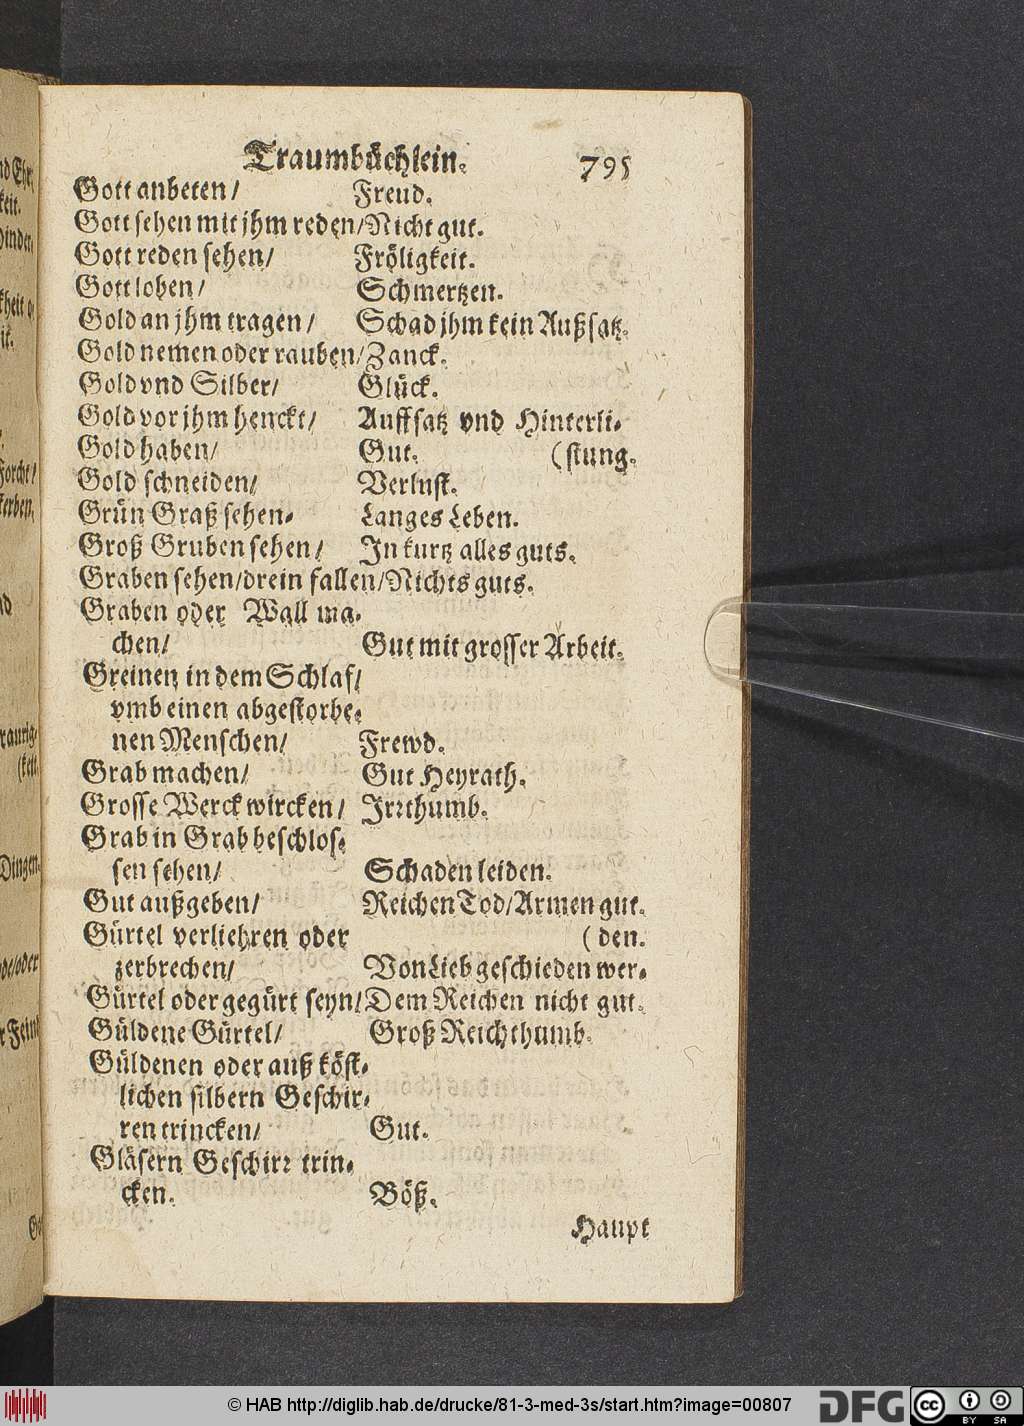 Traumbüchlein. 795
Gott anbeten/ Freud.
Gott sehen mit jhm reden/Nicht gut.
Gott reden sehen/ Fröligkeit.
Gott loben/ Schmertzen.
Gold an jhm tragen/ Schad jhm kein Außsatz.
Gold nemen oder rauben/Zanck.
Gold vnd Silber/ Glück.
Gold vor jhm henckt/ Auffsatz vnd Hinterli-
Gold haben/ Gut. (stung.
Gold schneiden/ Verlust.
Grün Graß sehen- Langes Leben.
Groß Gruben sehen/ In kurtz alles guts.
Graben sehen/drein fallen/Nichts guts.
Graben oder Wall ma-
chen/ Gut mit grosser Arbeit.
Greinen in dem Schlaf/
vmb einen abgestorbe-
nen Menschen/ Frewd.
Grab machen/ Gut Heyrath.
Grosse Werck wircken/ Irrthumb.
Grab in Grab beschlos-
sen sehen/ Schaden leiden.
Gut außgeben/ Reichen Tod/Armen gut.
Gürtel verliehren oder (den.
zerbrechen/ Von Lieb geschieden wer-
Gürtel oder gegürt seyn/Dem Reichen nicht gut.
Güldene Gürtel/ Groß Reichthumb.
Güldenen oder auß köst-
lichen silbern Geschir-
ren trincken/ Gut.
Gläsern Geschirr trin-
cken. Böß.
Haupt
© HAB http://diglib.hab.de/drucke/81-3-med-3s/start.htm?image=00807
DFG
cc BY SA